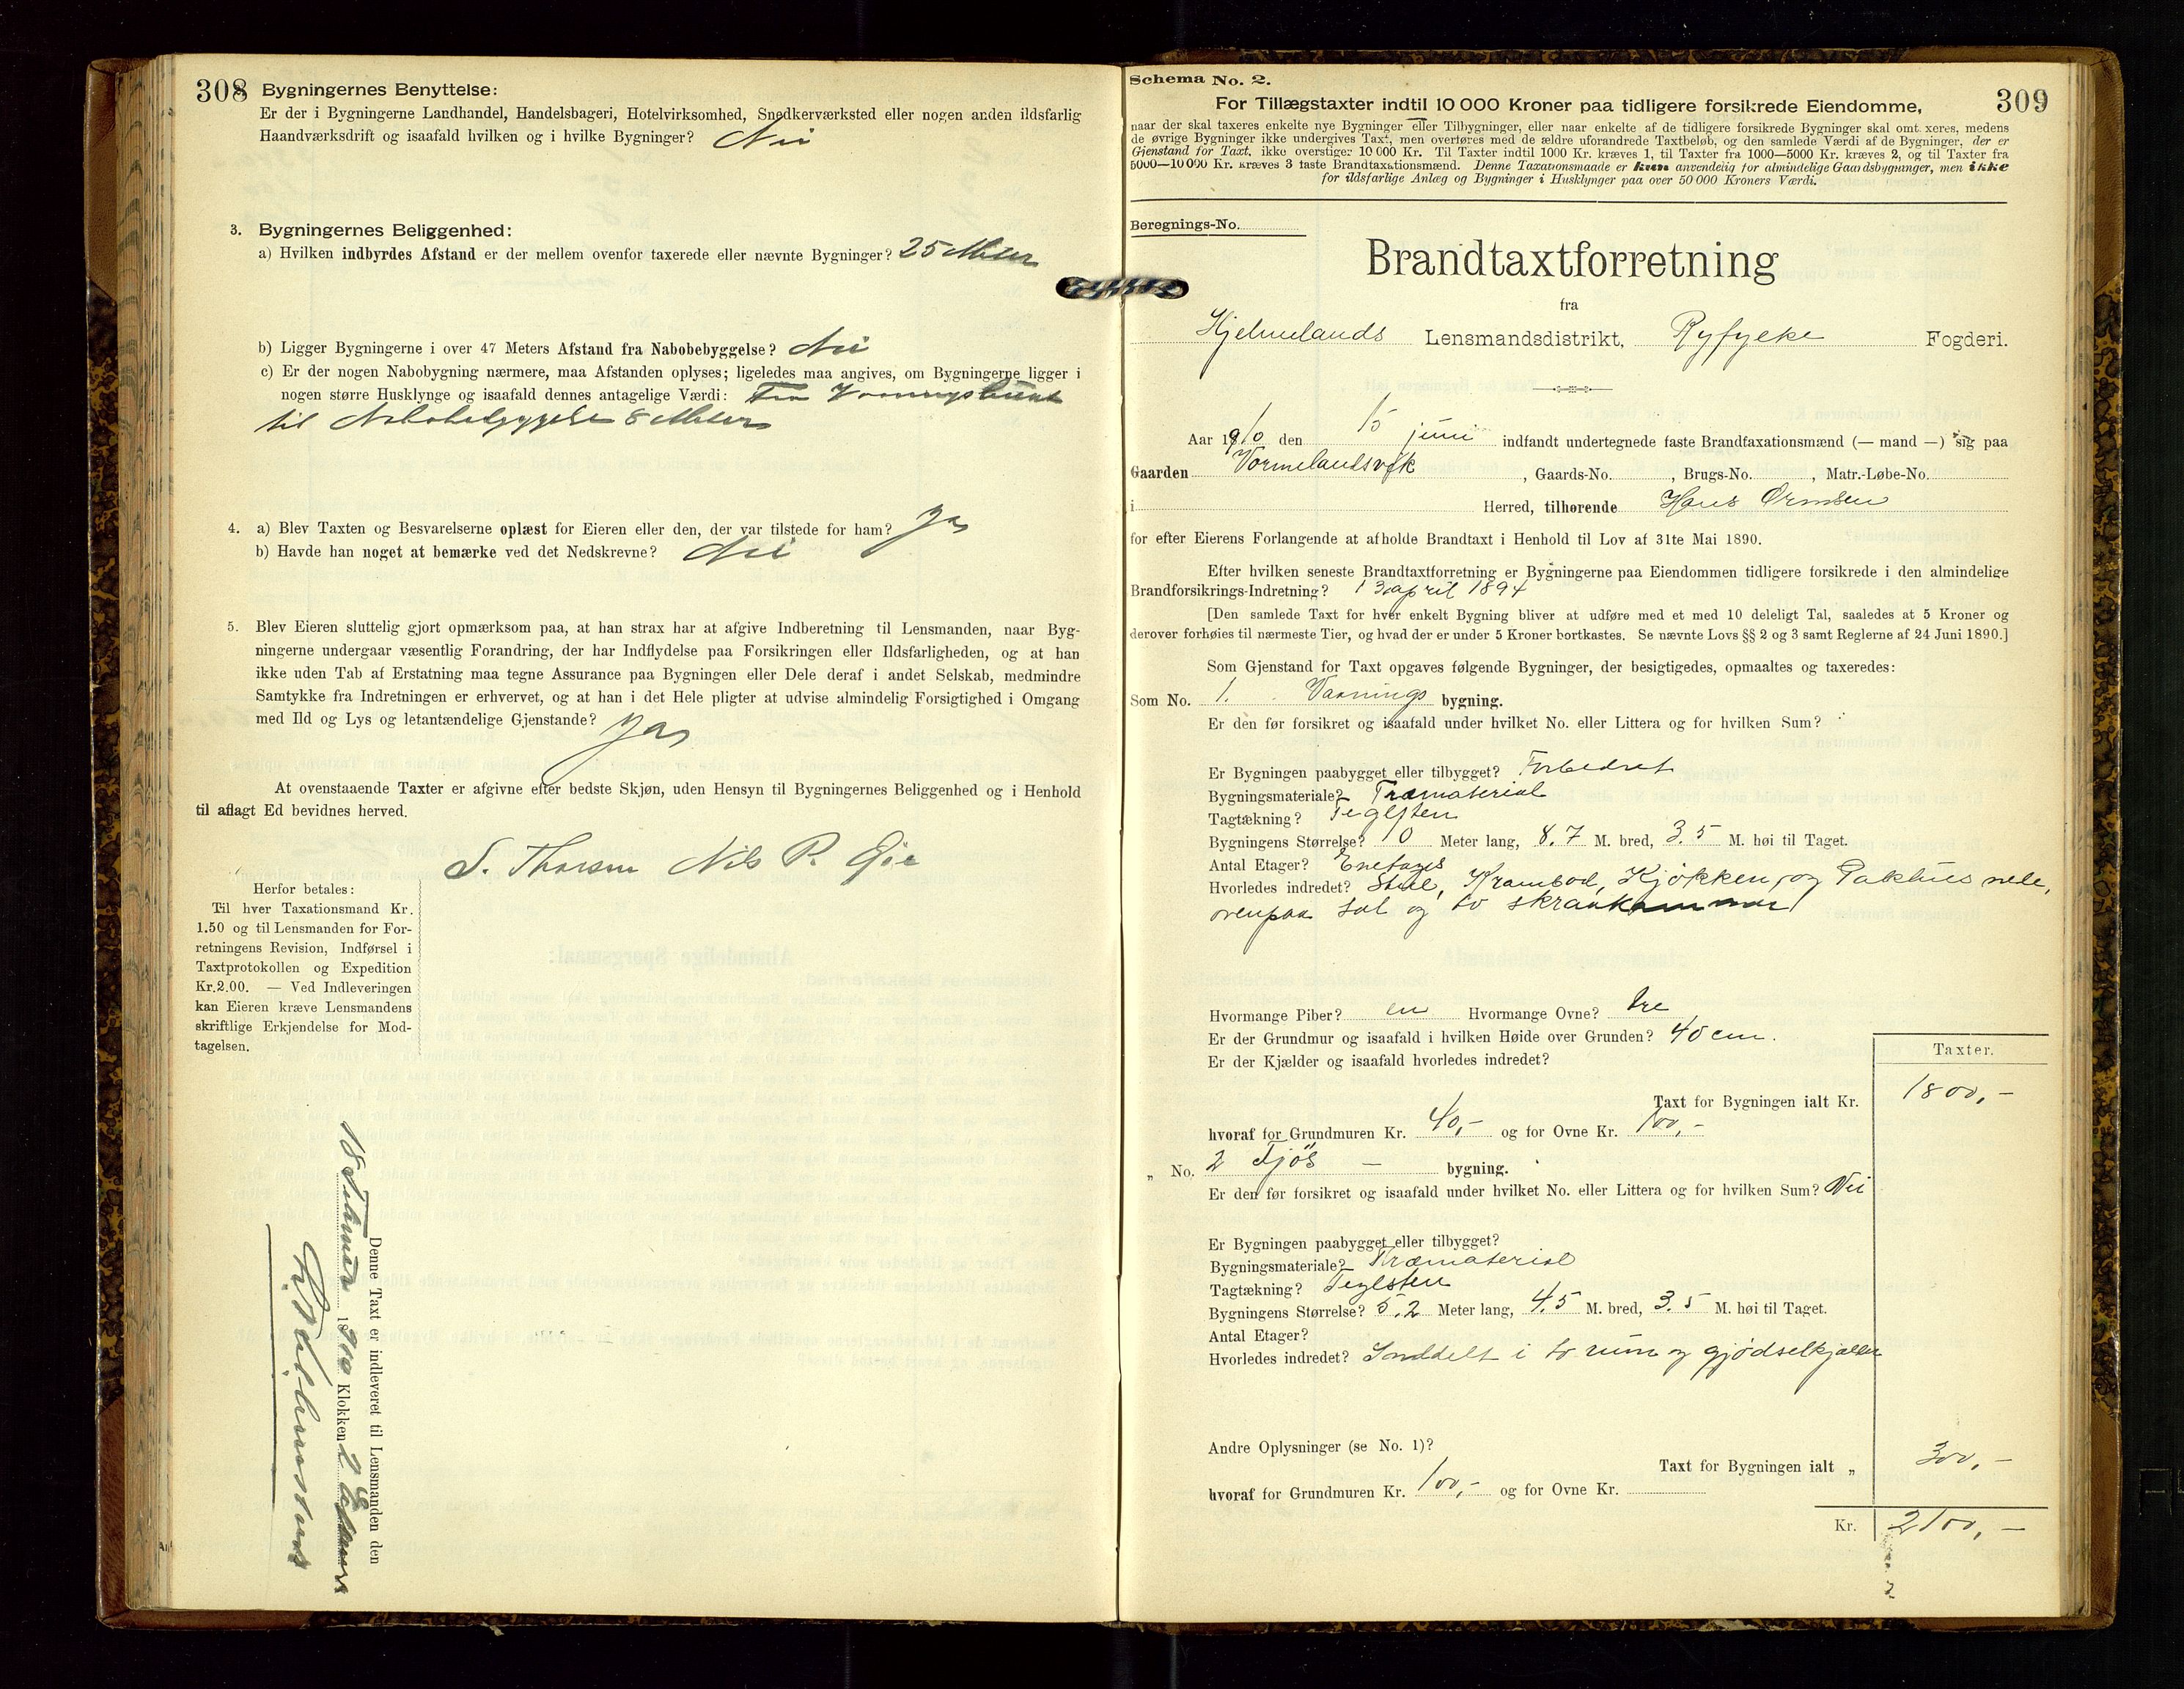 308 Bygningernes Benyttelse:
Er der i Bygningerne Landhandel, Handelsbageri, Hotelvirksomhed, Snedkerværksted eller nogen anden ildsfarlig
Haandværksdrift og isaafald hvilken og i hvilke Bygninger? Nei
3. Bygningernes Beliggenhed:
a) Hvilken indbyrdes Afstand er der mellem ovenfor taxerede eller nævnte Bygninger? 25 Meter
b) Ligger Bygningerne i over 47 Meters Afstand fra Nabobebyggelse? Nei
c) Er der nogen Nabobygning nærmere, maa Afstanden oplyses; ligeledes maa angives, om Bygningerne ligger i
nogen større Husklynge og isaafald dennes antagelige Værdi: Fra Vaaningshuset
til Nabobebyggelse 8 Meter
4. a) Blev Taxten og Besvarelserne oplæst for Eieren eller den, der var tilstede for ham? Ja
b) Havde han noget at bemærke ved det Nedskrevne? Nei
5. Blev Eieren sluttelig gjort opmærksom paa, at han strax har at afgive Indberetning til Lensmanden, naar Byg-
ningerne undergaar væsentlig Forandring, der har Indflydelse paa Forsikringen eller Ildsfarligheden, og at han
ikke uden Tab af Erstatning maa tegne Assurance paa Bygningen eller Dele deraf i andet Selskab, medmindre
Samtykke fra Indretningen er erhvervet, og at han i det Hele pligter at udvise almindelig Forsigtighed i Omgang
med Ild og Lys og letantændelige Gjenstande? Ja
At ovenstaaende Taxter er afgivne efter bedste Skjøn, uden Hensyn til Bygningernes Beliggenhed og i Henhold
til aflagt Ed bevidnes herved.
S. Thorsen Nils P. Øie
Herfor betales:
Til hver Taxationsmand Kr.
1.50 og til Lensmanden for For-
retningens Revision, Indførsel i
Taxtprotokollen og Expedition
Kr.2.00. — Ved Indleveringen
kan Eieren kræve Lensmandens
skriftlige Erkjendelse for Mod-
tagelsen.
Denne Taxt er indleveret til Lensmanden den
18 1910 Klokken 2
Schema No. 2.
309
For Tillægstaxter indtil 10 000 Kroner paa tidligere forsikrede Eiendomme,
naar der skal taxeres enkelte nye Bygninger eller Tilbygninger, eller naar enkelte af de tidligere forsikrede Bygninger skal omt.xeres, medens
de øvrige Bygninger ikke undergives Taxt, men overføres med de ældre uforandrede Taxtbeløb, og den samlede Værdi af de Bygninger, der er
Gjenstand for Taxt, ikke overstiger 10 000 Kr. Til Taxter indtil 1000 Kr. kræves 1, til Taxter fra 1000—5000 Kr. kræves 2, og til Taxter fra
5000—10 000 Kr. kræves 3 faste Brandtaxationsmænd. Denne Taxationsmaade er kun anvendelig for almindelige Gaardsbygninger, men ikke
for ildsfarlige Anlæg og Bygninger i Husklynger paa over 50 000 Kroners Værdi.
Beregnings-No.
Brandtaxtforretning
fra
Hjelmelands Lensmandsdistrikt, Ryfylke Fogderi.
Aar 1910 den 15 juni indfandt undertegnede faste Brandtaxationsmænd (— mand —) sig paa
Gaarden Vormelandsvik, Gaards-No. , Brugs-No. , Matr.-Løbe-No.
i Herred, tilhørende Hans Ormsen
for efter Eierens Forlangende at afholde Brandtaxt i Henhold til Lov af 31te Mai 1890.
Efter hvilken seneste Brandtaxtforretning er Bygningerne paa Eiendommen tidligere forsikrede i den almindelige
Brandforsikrings-Indretning? 13 april 1894
[Den samlede Taxt for hver enkelt Bygning bliver at udføre med et med 10 deleligt Tal, saaledes at 5 Kroner og
derover forhøies til nærmeste Tier, og hvad der er under 5 Kroner bortkastes. Se nævnte Lovs §§ 2 og 3 samt Reglerne af 24 Juni 1890.]
Som Gjenstand for Taxt opgaves følgende Bygninger, der besigtigedes, opmaaltes og taxeredes:
Som No. 1. Vaanings bygning.
Er den før forsikret og isaafald under hvilket No. eller Littera og for hvilken Sum?
Er Bygningen paabygget eller tilbygget? Forbedret
Bygningsmateriale? Træmaterial
Tagtækning? Teglsten
Bygningens Størrelse? 10 Meter lang, 8.7 M. bred, 3.5 M. høi til Taget.
Antal Etager? Enetages
Hvorledes indredet? Stue, Krambod, Kjøkken, og Pakhus nede,
ovenpaa sal og to skraakammer
Hvormange Piber? en Hvormange Ovne? tre
Er der Grundmur og isaafald i hvilken Høide over Grunden? 40 cm.
Er der Kjælder og isaafald hvorledes indredet?
Taxter.
Taxt for Bygningen ialt Kr. 1800,-
hvoraf for Grundmuren Kr. 40,- og for Ovne Kr. 100,-
„ No. 2 Fjøs - bygning.
Er den før forsikret og isaafald under hvilket No. eller Littera og for hvilken Sum? Nei
Er Bygningen paabygget eller tilbygget?
Bygningsmateriale? Træmaterial
Tagtækning? Teglsten
Bygningens Størrelse? 5.2 Meter lang, 4.5 M. bred, 3.5 M. høi til Taget.
Antal Etager?
Hvorledes indredet? Inddelt i to rum og gjødselkjælder
Andre Oplysninger (se No. 1)?
Taxt for Bygningen ialt „ 300,-
hvoraf for Grundmuren Kr. 100,- og for Ovne Kr.
Kr. 2100,-